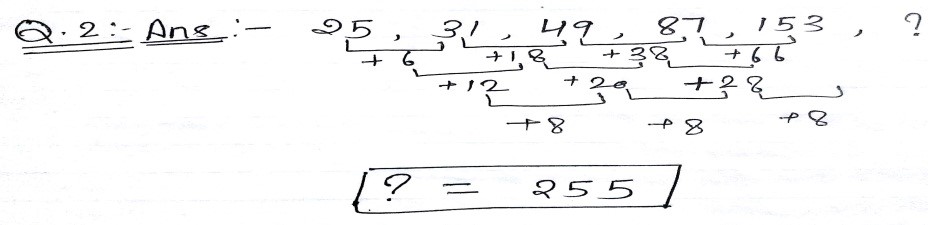 Q.2:- Ans:- 25, 31, 49, 87, 153, ?
+6 +18 +38 +66
+12 +20 +28
+8 +8 +8
? = 255